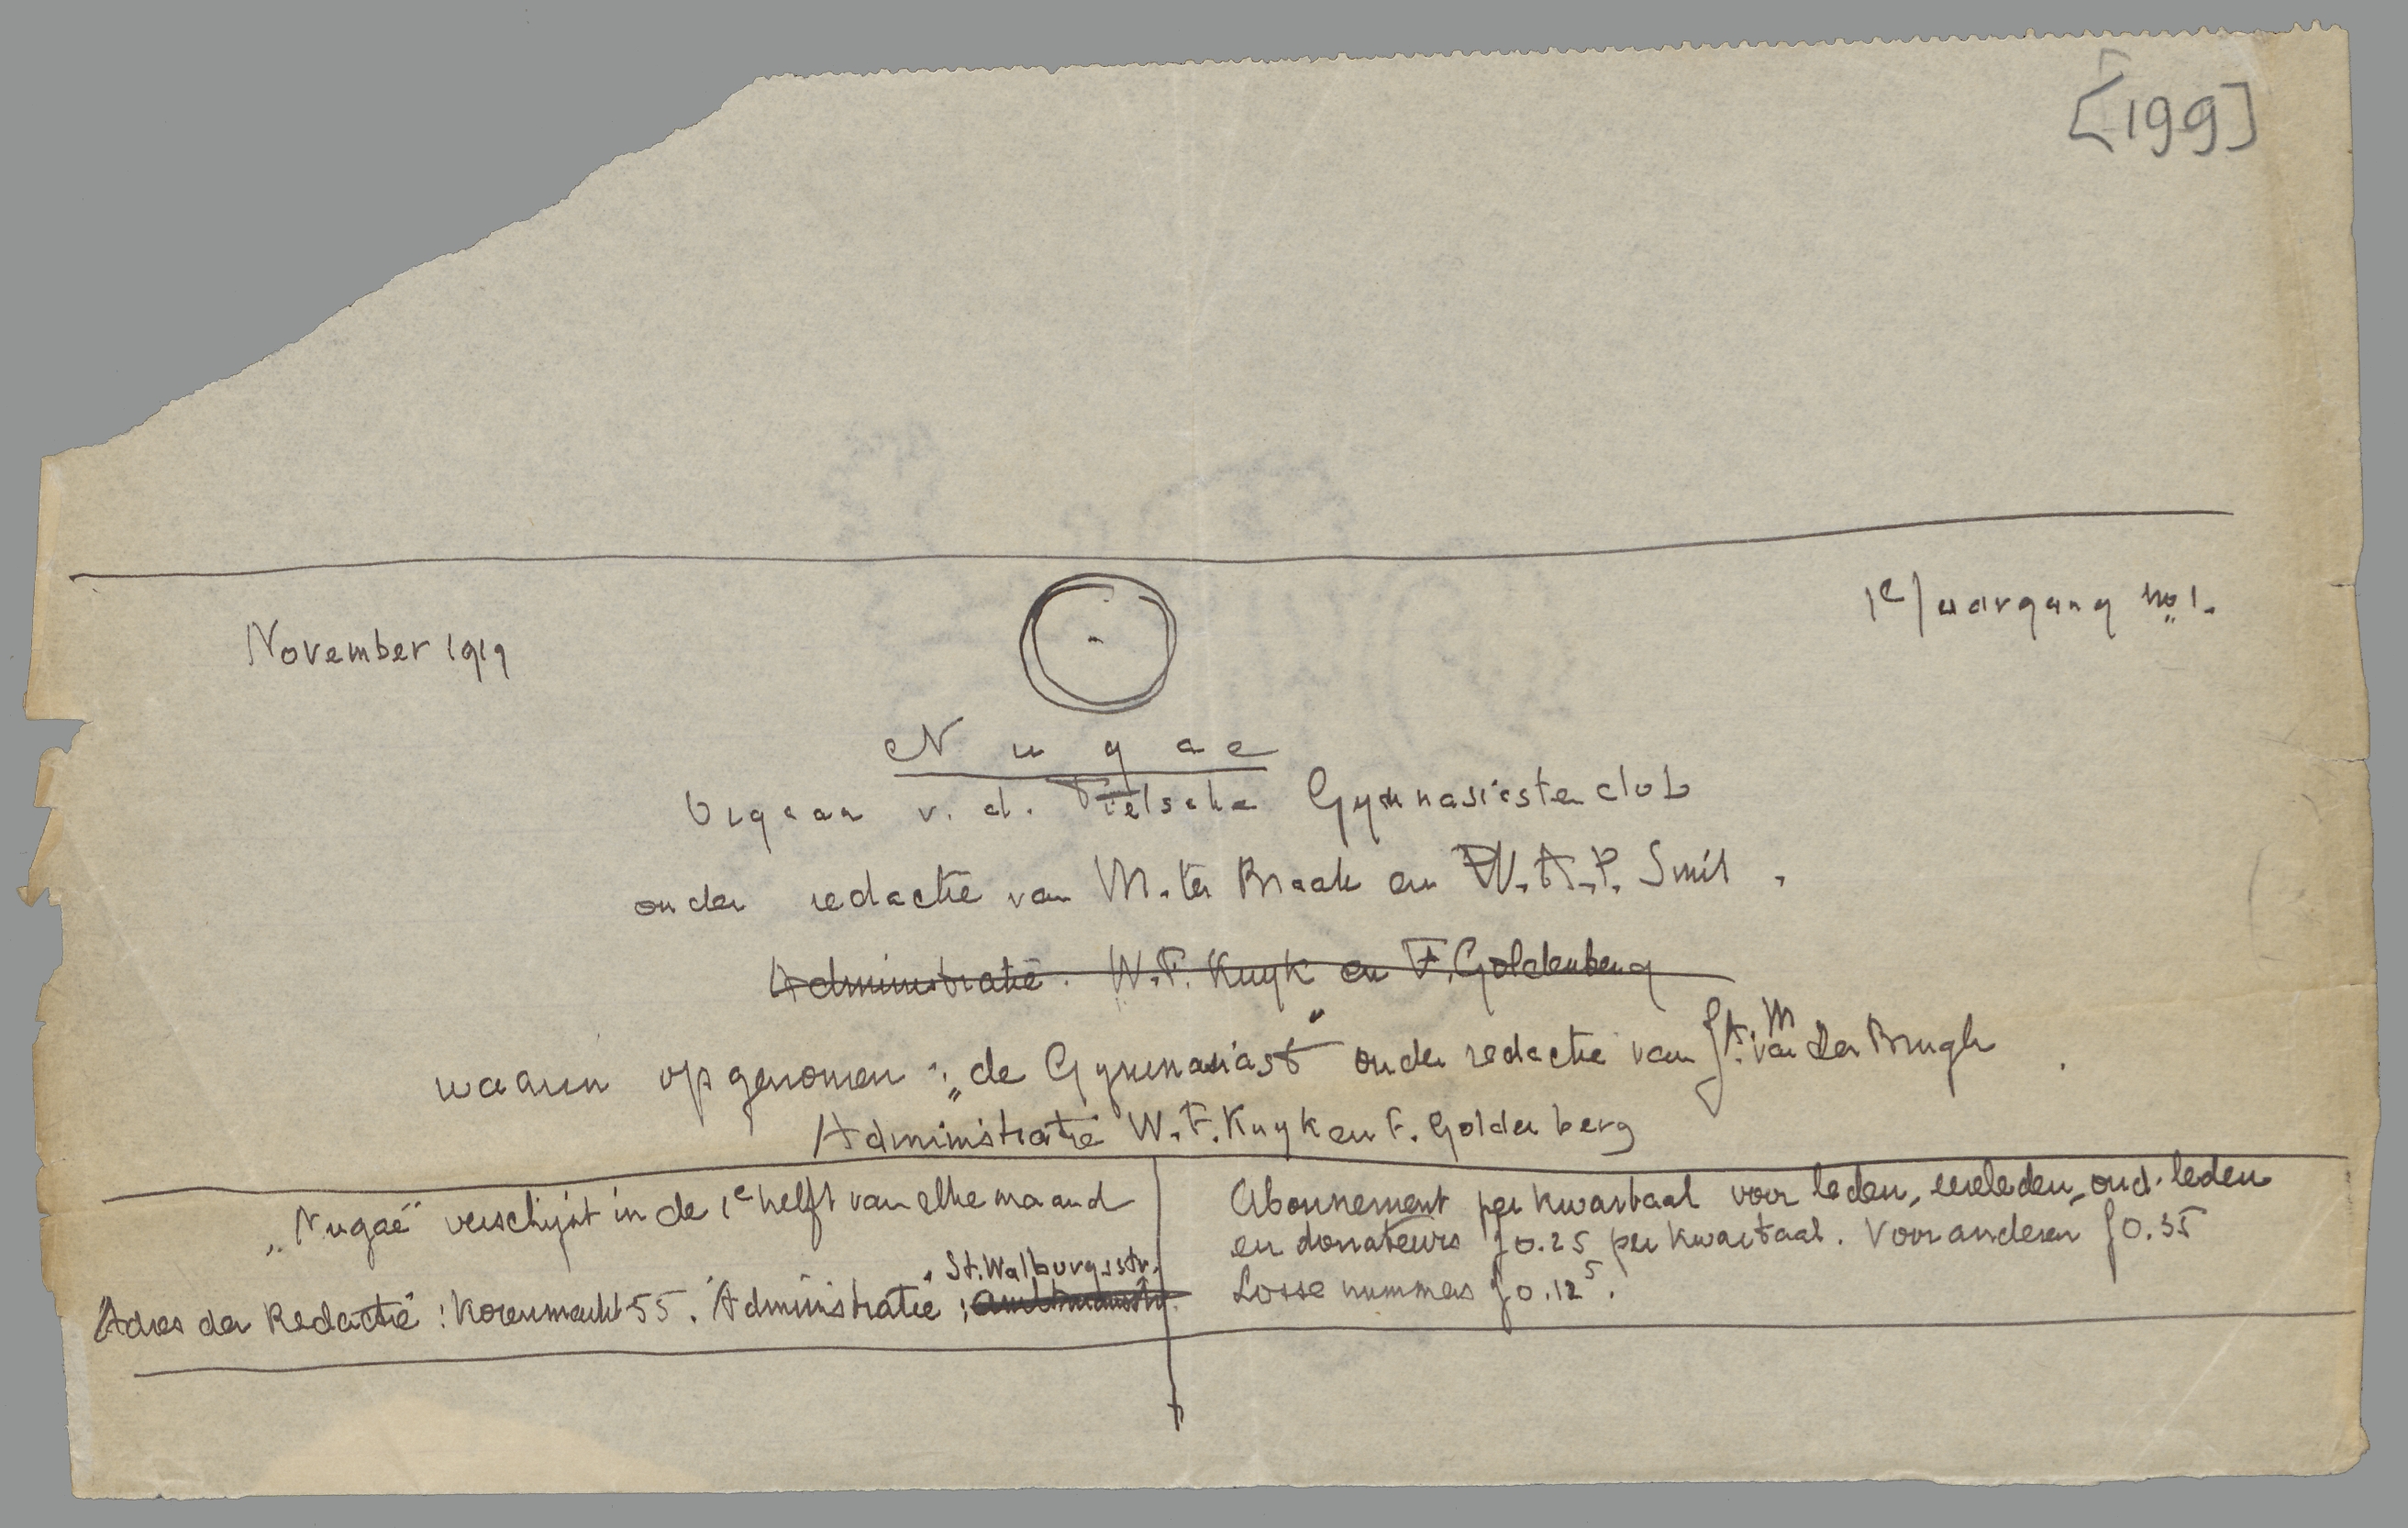 [199]
November 1919
1e Jaargang no 1.
Nugae
Orgaan v. d. Tielsche Gymnasiastenclub
onder redactie van M. ter Braak en W. A. P. Smit.
Administratie. W. F. Kuyk en F. Goldenberg
waarin opgenomen: „de Gymnasiast" onder redactie van A. M. van der Brugh
Administratie W. F. Kuyk en F. Goldenberg
„Nugae" verschijnt in de 1e helft van elke maand
St. Walburgsstr.
Adres der Redactie: Korenmarkt 55. Administratie:
Abonnement per kwartaal voor leden, eereleden, oud-leden
en donateurs f 0.25 per kwartaal. Voor anderen f 0.35
Losse nummers f 0.12⁵.